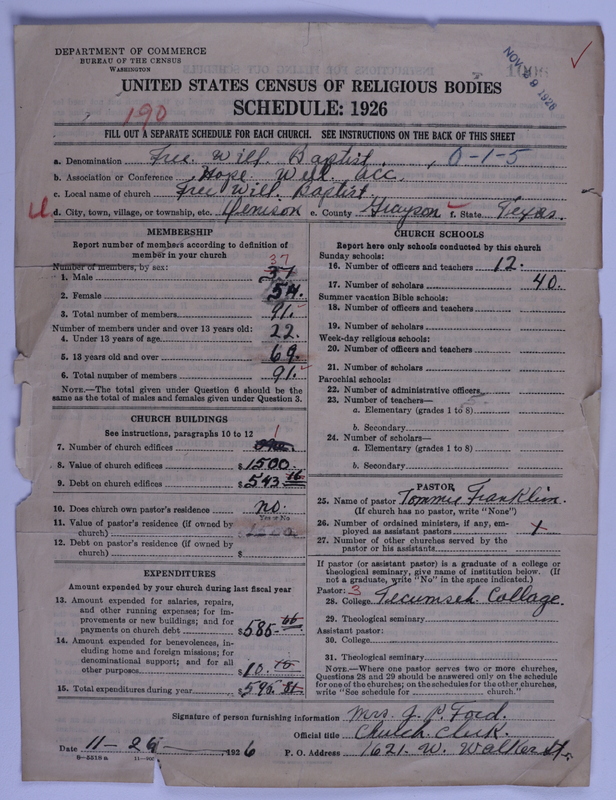 DEPARTMENT OF COMMERCE
BUREAU OF THE CENSUS
WASHINGTON
NOV 29 1926
UNITED STATES CENSUS OF RELIGIOUS BODIES
SCHEDULE: 1926
190
FILL OUT A SEPARATE SCHEDULE FOR EACH CHURCH. SEE INSTRUCTIONS ON THE BACK OF THIS SHEET
a. Denomination Free Will Baptist, 0-1-5
b. Association or Conference Hope Well acc.
c. Local name of church Free Will Baptist
d. City, town, village, or township, etc. Denison e. County Grayson f. State Texas.
MEMBERSHIP
Report number of members according to definition of
member in your church
Number of members, by sex:
37
1. Male 37
2. Female 54.
3. Total number of members 91.
Number of members under and over 13 years old:
4. Under 13 years of age 22.
5. 13 years old and over 69.
6. Total number of members 91.
NOTE.—The total given under Question 6 should be
the same as the total of males and females given under Question 3.
CHURCH BUILDINGS
See instructions, paragraphs 10 to 12
7. Number of church edifices 1
8. Value of church edifices $ 1500.
9. Debt on church edifices $ 543 16
10. Does church own pastor's residence no.
Yes or No
11. Value of pastor's residence (if owned by
church) $
12. Debt on pastor's residence (if owned by
church) $
EXPENDITURES
Amount expended by your church during last fiscal year
13. Amount expended for salaries, repairs,
and other running expenses; for im-
provements or new buildings; and for
payments on church debt $ 585.
14. Amount expended for benevolences, in-
cluding home and foreign missions; for
denominational support; and for all
other purposes $ 10.
15. Total expenditures during year $ 595.
CHURCH SCHOOLS
Report here only schools conducted by this church
Sunday schools:
16. Number of officers and teachers 12.
17. Number of scholars 40.
Summer vacation Bible schools:
18. Number of officers and teachers
19. Number of scholars
Week-day religious schools:
20. Number of officers and teachers
21. Number of scholars
Parochial schools:
22. Number of administrative officers
23. Number of teachers—
a. Elementary (grades 1 to 8)
b. Secondary
24. Number of scholars—
a. Elementary (grades 1 to 8)
b. Secondary
PASTOR
25. Name of pastor Tommie Franklin.
(If church has no pastor, write "None")
26. Number of ordained ministers, if any, em-
ployed as assistant pastors
27. Number of other churches served by the
pastor or his assistants
If pastor (or assistant pastor) is a graduate of a college or
theological seminary, give name of institution below. (If
not a graduate, write "No" in the space indicated.)
Pastor: 3
28. College Tecumseh Collage.
29. Theological seminary
Assistant pastor:
30. College
31. Theological seminary
NOTE.—Where one pastor serves two or more churches,
Questions 28 and 29 should be answered only on the schedule
for one of the churches; on the schedules for the other churches,
write "See schedule for church."
Signature of person furnishing information Mrs. J. P. Ford.
Official title Church Clerk.
Date 11-26 1926 P. O. Address 1621. W. Walker St.
8-5518 a